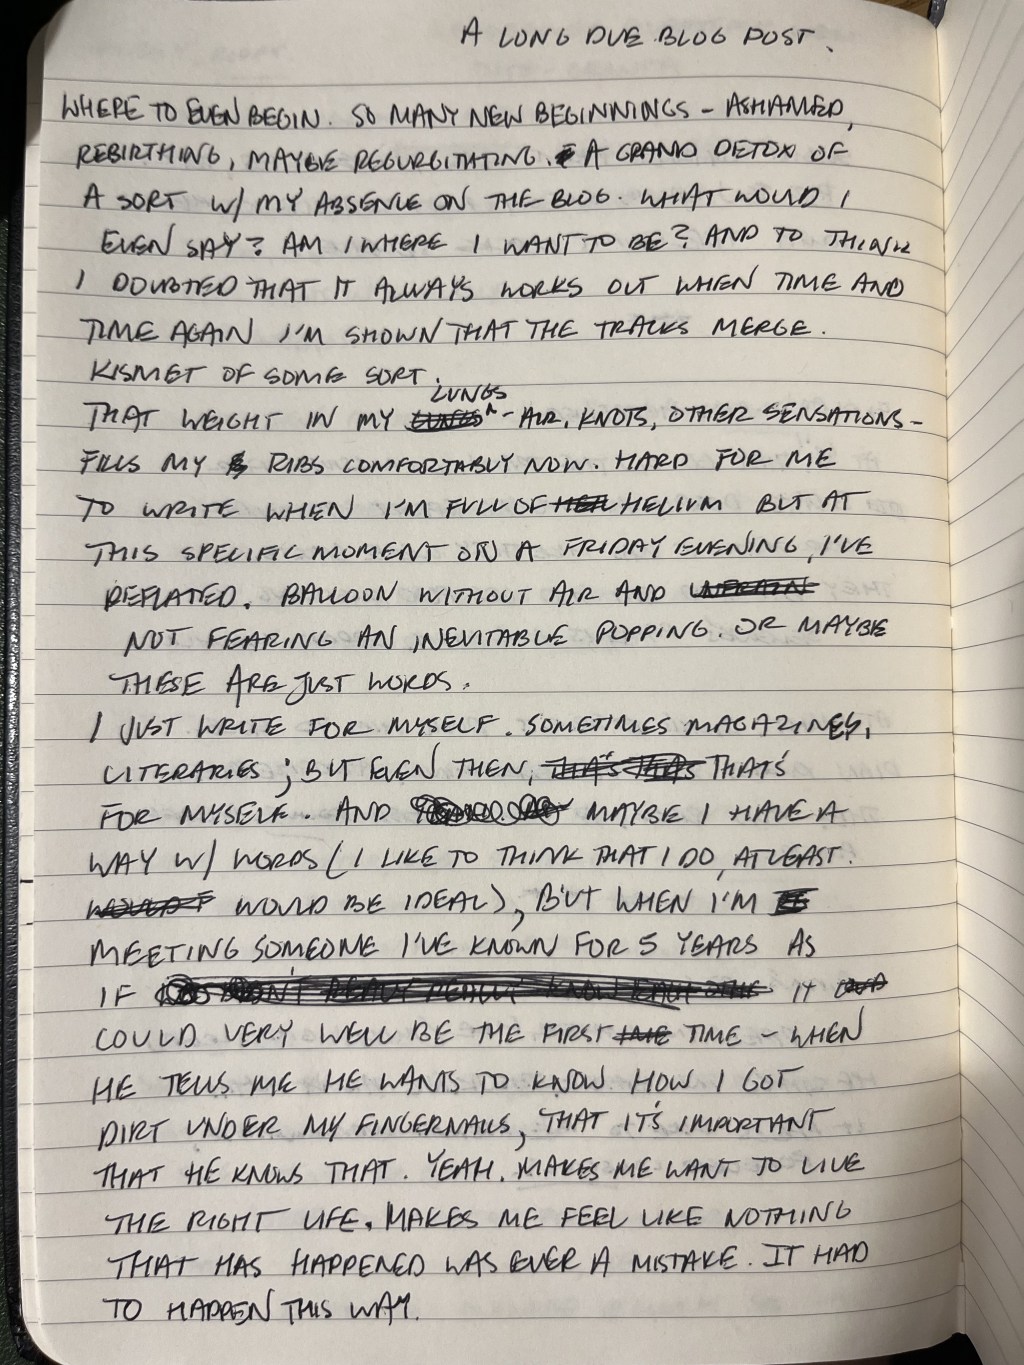 A LONG DUE BLOG POST.
WHERE TO EVEN BEGIN. SO MANY NEW BEGINNINGS - ASHAMED,
REBIRTHING, MAYBE REGURGITATING. A GRAND DETOX OF
A SORT W/ MY ABSENCE ON THE BLOG. WHAT WOULD I
EVEN SAY? AM I WHERE I WANT TO BE? AND TO THINK
I DOUBTED THAT IT ALWAYS WORKS OUT WHEN TIME AND
TIME AGAIN I'M SHOWN THAT THE TRACKS MERGE.
KISMET OF SOME SORT.
THAT WEIGHT IN MY LUNGS - AIR, KNOTS, OTHER SENSATIONS -
FILLS MY RIBS COMFORTABLY NOW. HARD FOR ME
TO WRITE WHEN I'M FULL OF HELIUM BUT AT
THIS SPECIFIC MOMENT ON A FRIDAY EVENING, I'VE
DEFLATED. BALLOON WITHOUT AIR AND
NOT FEARING AN INEVITABLE POPPING. OR MAYBE
THESE ARE JUST WORDS.
I JUST WRITE FOR MYSELF. SOMETIMES MAGAZINES,
LITERARIES; BUT EVEN THEN, THAT'S
FOR MYSELF. AND MAYBE I HAVE A
WAY W/ WORDS (I LIKE TO THINK THAT I DO, ATLEAST.
WOULD BE IDEAL), BUT WHEN I'M
MEETING SOMEONE I'VE KNOWN FOR 5 YEARS AS
IF IT
COULD VERY WELL BE THE FIRST TIME - WHEN
HE TELLS ME HE WANTS TO KNOW HOW I GOT
DIRT UNDER MY FINGERNAILS, THAT IT'S IMPORTANT
THAT HE KNOWS THAT. YEAH. MAKES ME WANT TO LIVE
THE RIGHT LIFE. MAKES ME FEEL LIKE NOTHING
THAT HAS HAPPENED WAS EVER A MISTAKE. IT HAD
TO HAPPEN THIS WAY.